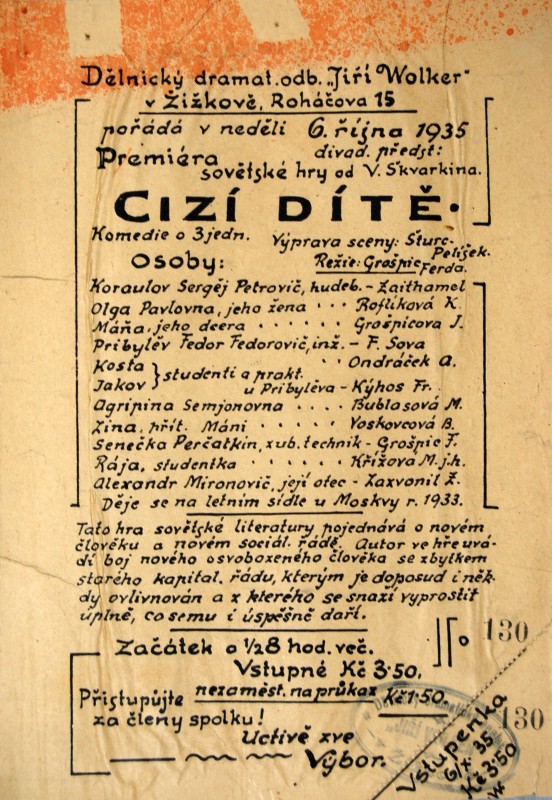 Dělnický dramat. odb. „Jiří Wolker"
v Žižkově, Roháčova 15
pořádá v neděli 6. října 1935
Premiéra divad. předst:
sovětské hry od V. Škvarkina.
CIZÍ DÍTĚ.
Komedie o 3 jedn. Výprava sceny: Šturc-
Pelíšek.
Osoby: Režie: Grošpic Ferda.
Koraulov Sergěj Petrovič, hudeb. - Zaithamel
Olga Pavlovna, jeho žena ... Roflíková K.
Máňa, jeho dcera ...... Grošpicova J.
Pribylěv Fedor Fedorovič, inž. - F. Sova
Kosta } studenti a prakt. Ondráček A.
Jakov } u Pribylěva - Kýhos Fr.
Agripina Semjonovna .... Bublasová M.
Zina, přít. Máni ..... Voskovcová B.
Senečka Perčatkin, zub. technik - Grošpic F.
Rája, studentka ...... Křížova M. j. h.
Alexandr Mironovič, její otec - Zazvonil Ž.
Děje se na letním sídle u Moskvy r. 1933.
Tato hra sovětské literatury pojednává o novém
člověku a novém sociál. řádě. Autor ve hře uvá-
dí boj nového osvobozeného člověka se zbytkem
starého kapital. řádu, kterým je doposud i něk-
dy ovlivnován a z kterého se snazí vyprostit
úplně, co se mu i úspěšně daří.
Začátek o ½8 hod. več.
130
Vstupné Kč 3·50.
nezaměst. na průkaz Kč 1·50.
Přistupůjte
za členy spolku!
Uctivě zve
Výbor.
130
Vstupenka
6/X. 35
Kč 3·50
W.